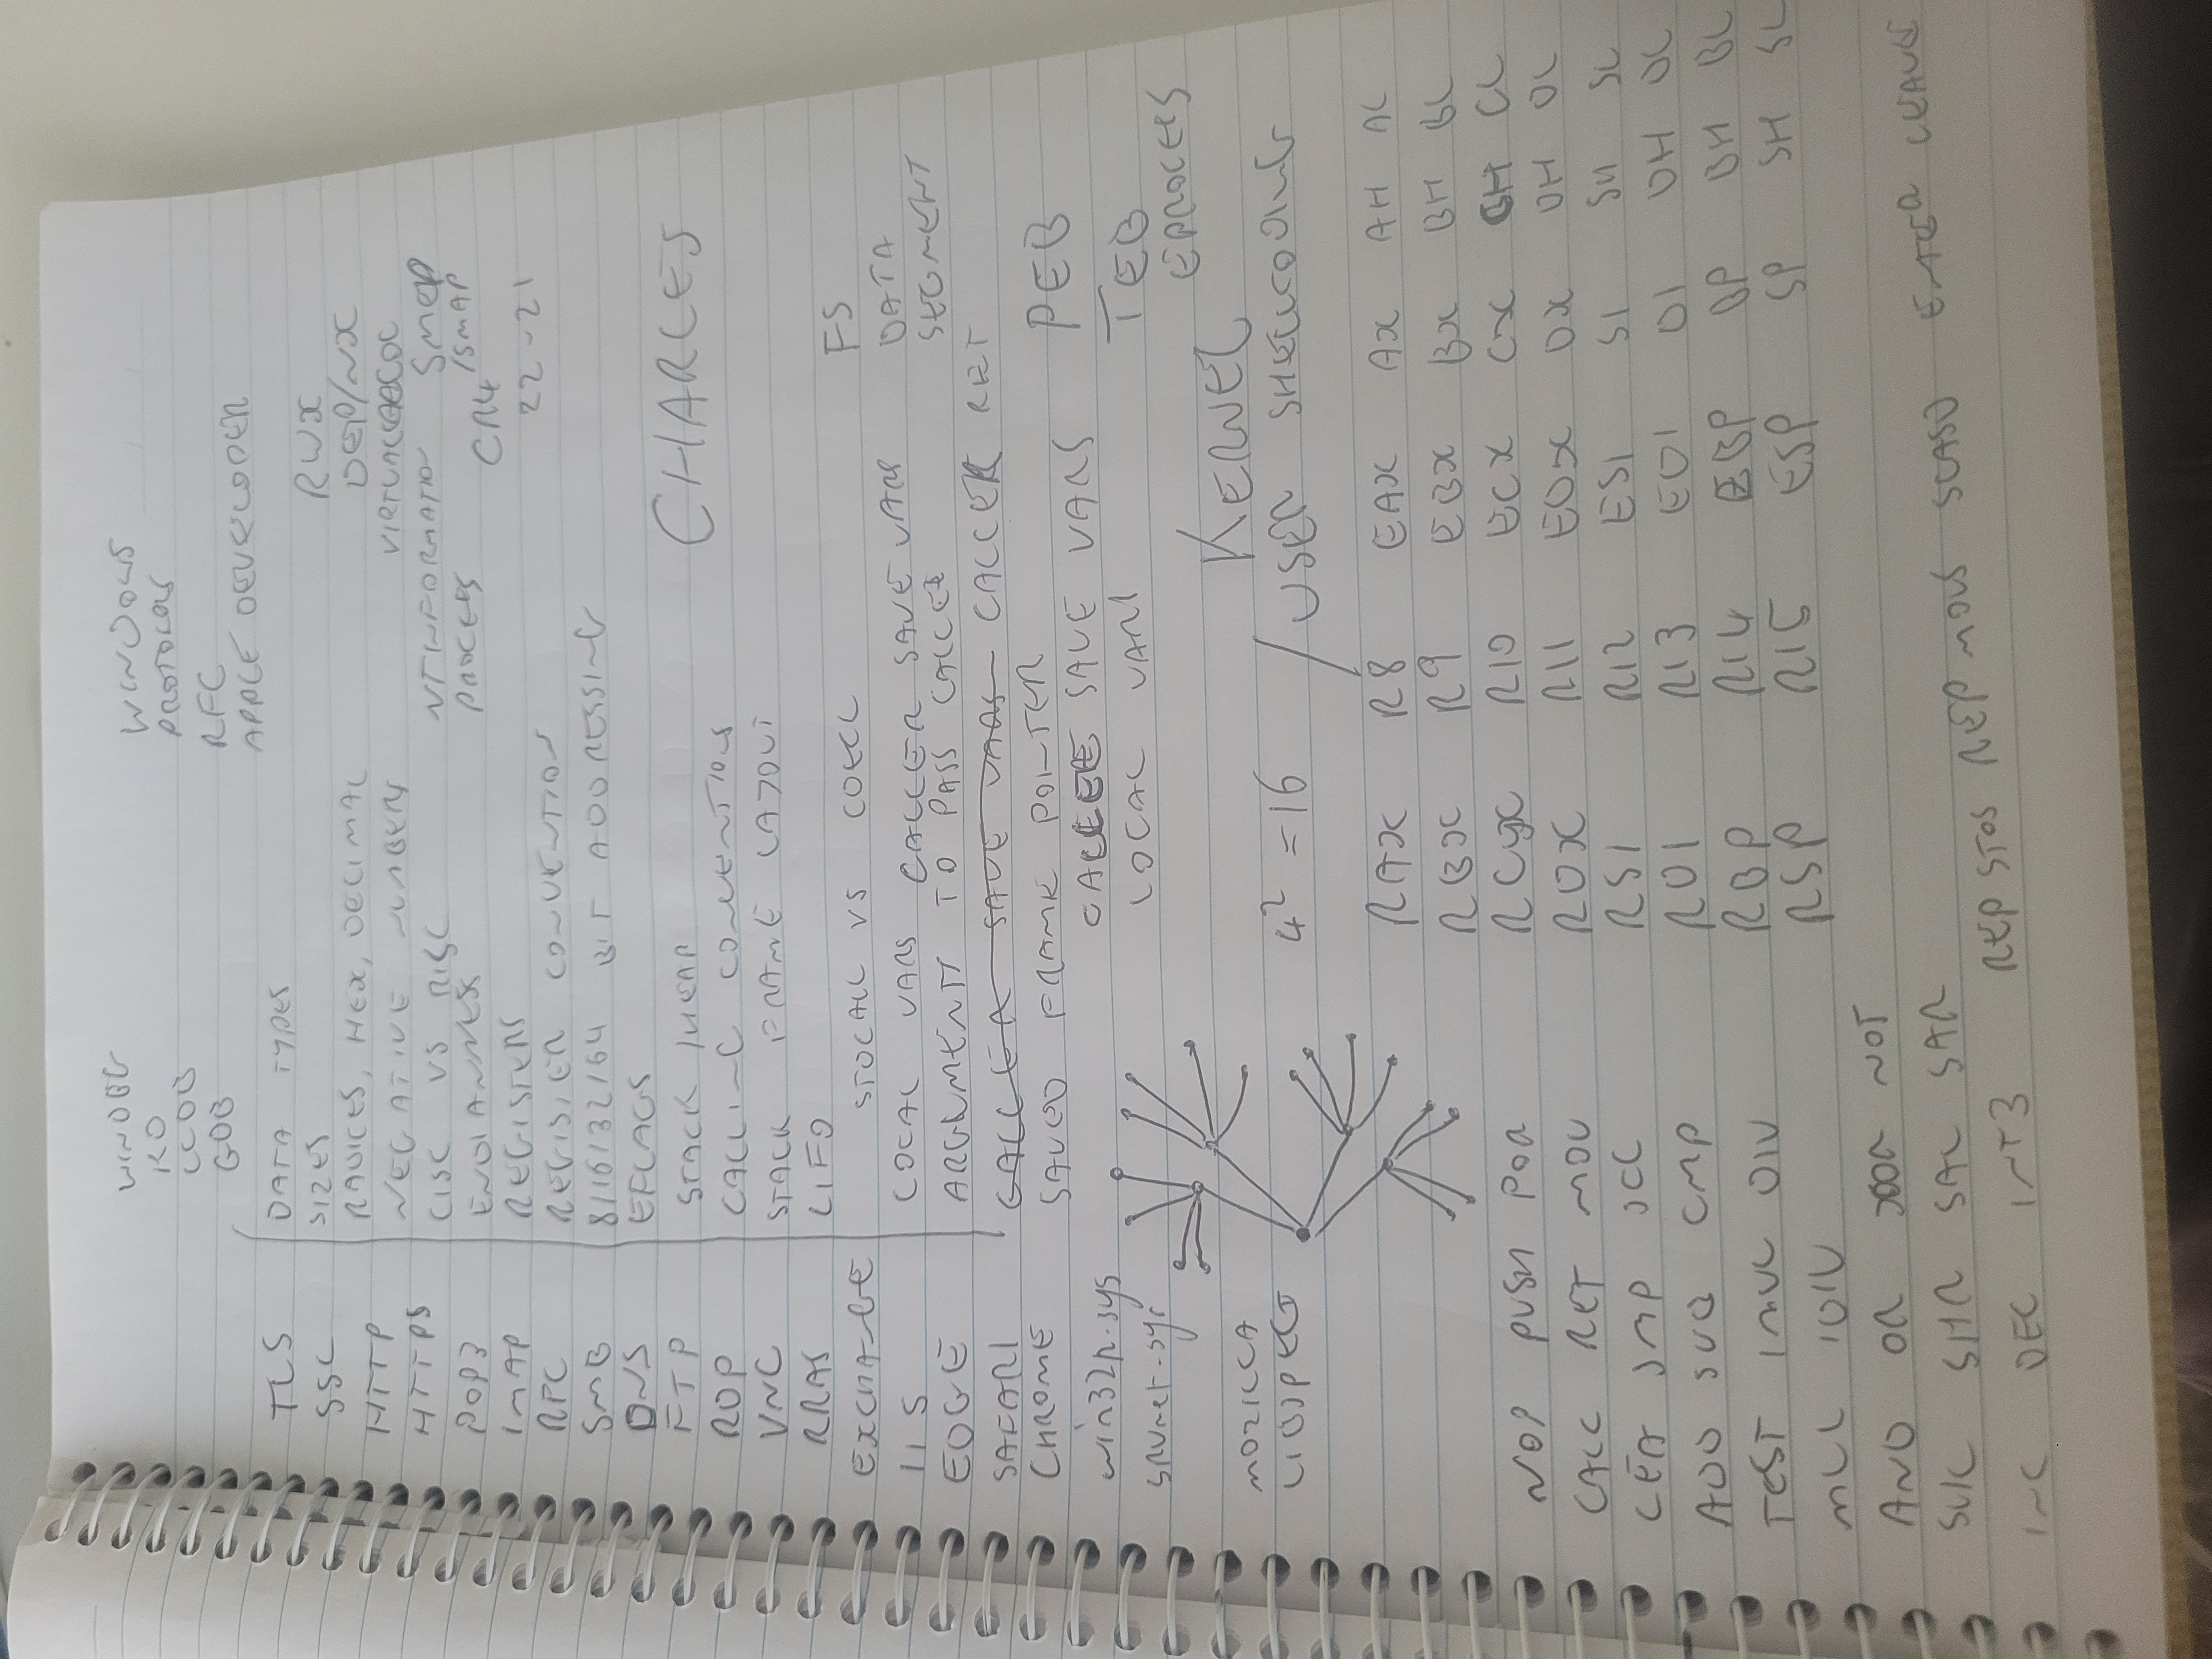 WINDBG
KD
LLDB
GDB
WINDOWS
PROTOCOLS
RFC
APPLE DEVELOPER
TLS
SSL
HTTP
HTTPS
POP3
IMAP
RPC
SMB
DNS
FTP
RDP
VNC
RRAS
EXCHANGE
IIS
EDGE
SAFARI
CHROME
win32k.sys
srvnet.sys
MOZILLA
LIBJPEG
DATA TYPES
SIZES
RADICES, HEX, DECIMAL
NEGATIVE NUMBERS
CISC VS RISC
ENDIANNESS
REGISTERS
REGISTER CONVENTION
8/16/32/64 BIT ADDRESSING
EFLAGS
STACK /HEAP
CALLING CONVENTIONS
STACK FRAME LAYOUT
LIFO
STDCALL VS CDECL
LOCAL VARS CALLER SAVE VARS
ARGUMENTS TO PASS CALLEE
CALLER SAVE VARS CALLER RET
SAVED FRAME POINTER
CALLEE SAVE VARS
LOCAL VARS
RWX
DEP/NX
VIRTUALALLOC
NTINFORMATION
PROCESS
SMEP
/SMAP
CR4
22-21
CHARLES
FS
DATA
SEGMENT
PEB
TEB
EPROCESS
KERNEL
/USER SHELLCODING
4² = 16
RAX R8 EAX AX AH AL
RBX R9 EBX BX BH BL
RCX R10 ECX CX CH CL
RDX R11 EDX DX DH DL
RSI R12 ESI SI SH SL
RDI R13 EDI DI DH DL
RBP R14 EBP BP BH BL
RSP R15 ESP SP SH SL
NOP PUSH POP
CALL RET MOV
LEA JMP JCC
ADD SUB CMP
TEST IMUL DIV
MUL IDIV
AND OR XOR NOT
SHL SHR SAL SAR
INC DEC INT3 REP STOS REP MOVS SCASD ENTER LEAVE